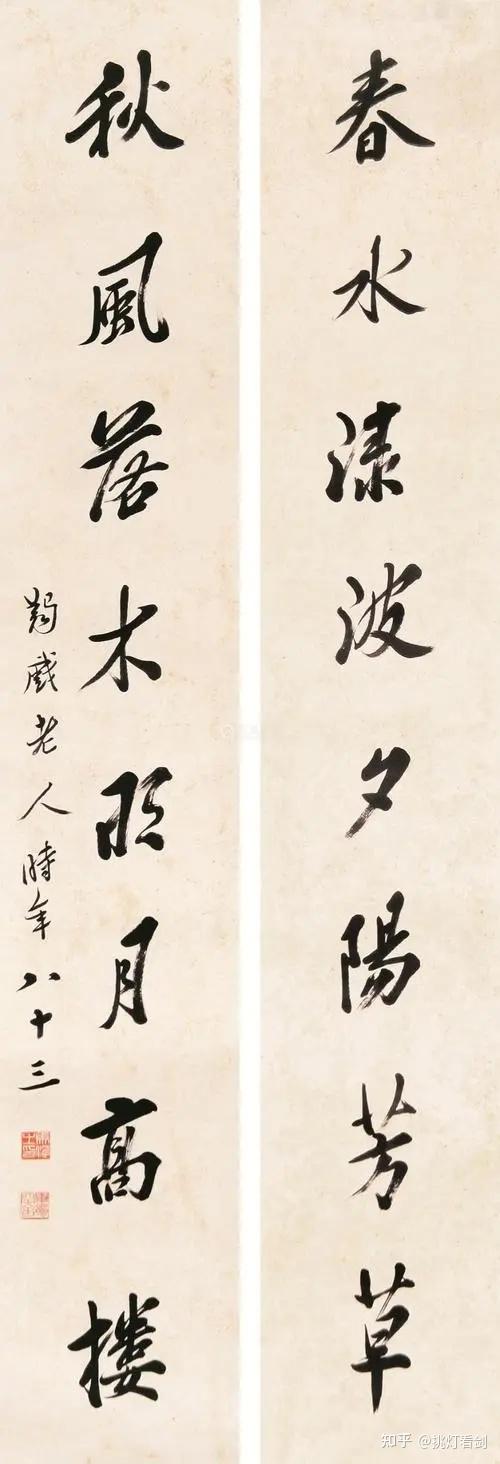 春水渌波夕陽芳草
秋風落木明月高樓
蠲戲老人時年八十三
知乎 @挑灯看剑